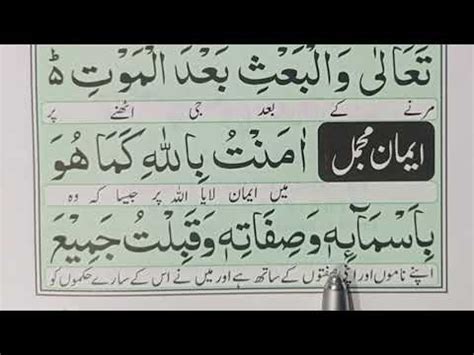 تَعَالٰى وَالْبَعْثِ بَعْدَ الْمَوْتِ ۵ؕ
مرنے کے بعد جی اٹھنے پر
ایمان مجمل اٰمَنْتُ بِاللّٰهِ كَمَا هُوَ
میں ایمان لایا اللہ پر جیسا کہ وہ
بِاَسْمَآئِهٖ وَصِفَاتِهٖ وَقَبِلْتُ جَمِيْعَ
اپنے ناموں اور اپنی صفتوں کے ساتھ ہے اور میں نے اس کے سارے حکموں کو